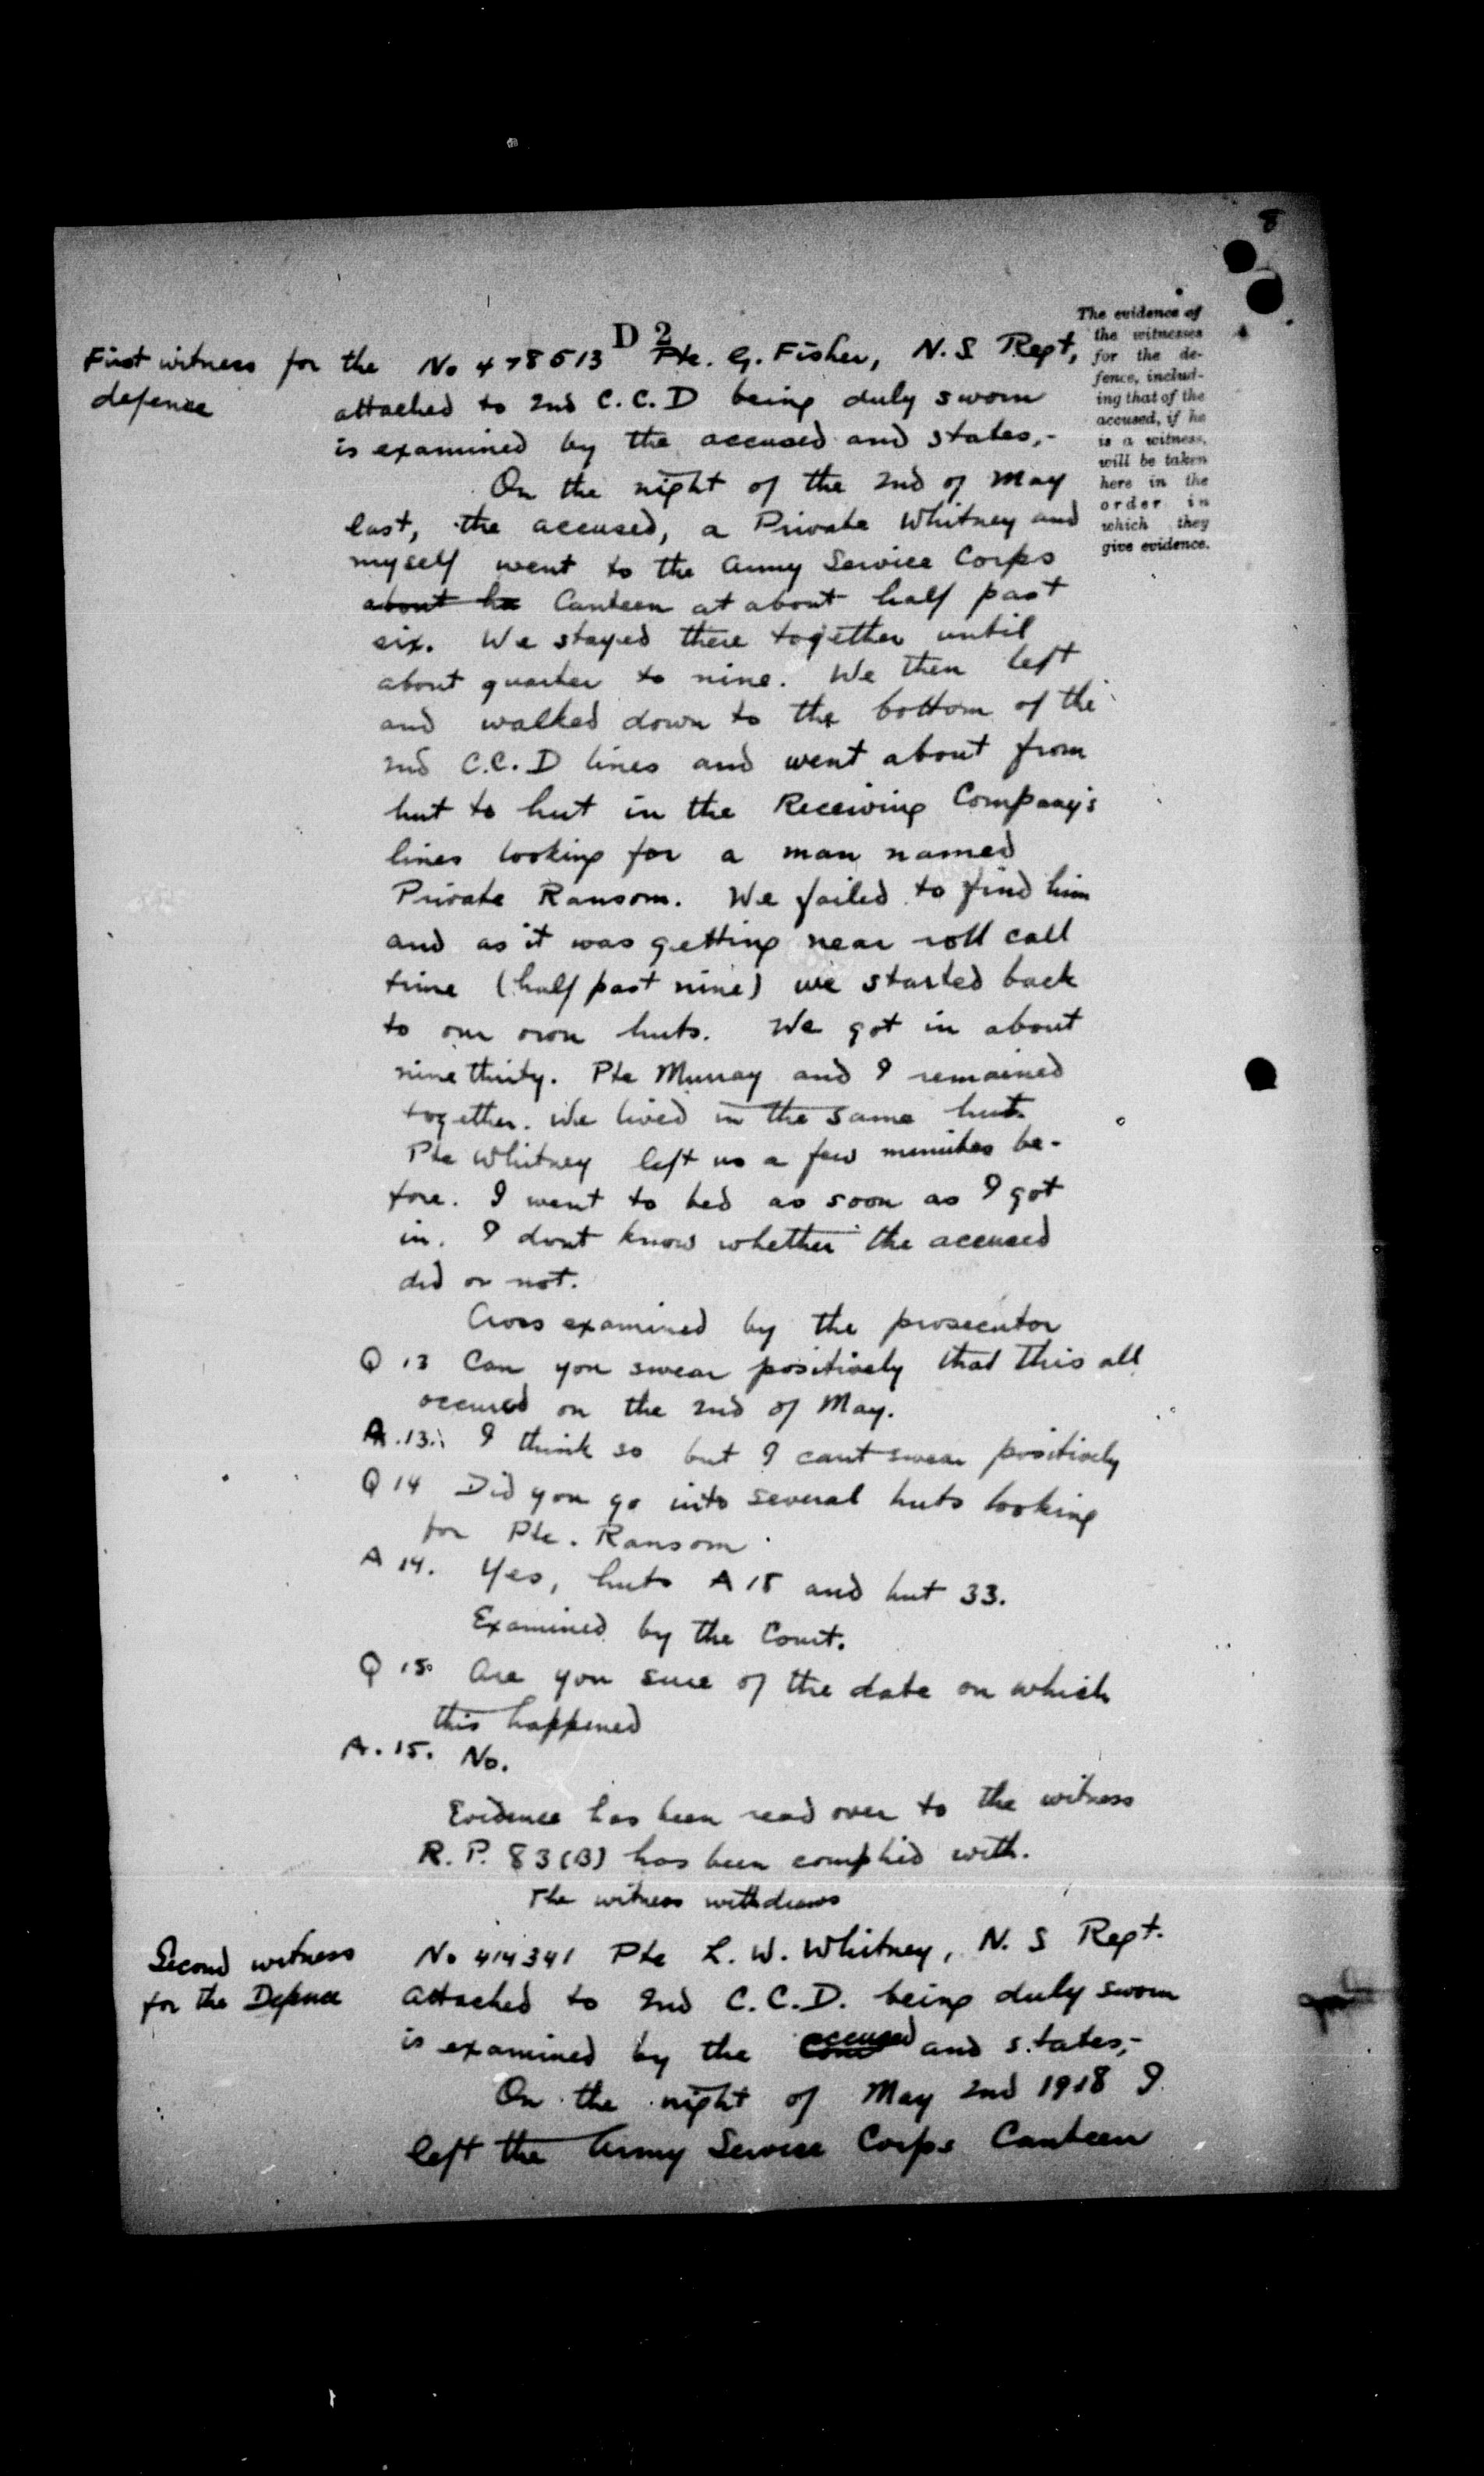 8
D 2
The evidence of
the witnesses
for the de-
fence, includ-
ing that of the
accused, if he
is a witness,
will be taken
here in the
order in
which they
give evidence.
First witness for the
defence
No 478513 Pte. G. Fisher, N.S Regt,
attached to 2nd C.C.D being duly sworn
is examined by the accused and states,-
On the night of the 2nd of May
last, the accused, a Private Whitney and
myself went to the Army Service Corps
about ha Canteen at about half past
six. We stayed there together until
about quarter to nine. We then left
and walked down to the bottom of the
2nd C.C.D lines and went about from
hut to hut in the Receiving Company's
lines looking for a man named
Private Ransom. We failed to find him
and as it was getting near roll call
time (half past nine) we started back
to our own huts. We got in about
nine thirty. Pte Murray and I remained
together. We lived in the same hut.
Pte Whitney left us a few minutes be-
fore. I went to bed as soon as I got
in. I dont know whether the accused
did or not.
Cross examined by the prosecutor
Q 13 Can you swear positively that this all
occured on the 2nd of May.
A.13. I think so but I cant swear positively
Q 14 Did you go into several huts looking
for Pte. Ransom
A 14. Yes, huts A 15 and hut 33.
Examined by the Court.
Q 15. Are you sure of the date on which
this happened
A. 15. No.
Evidence has been read over to the witness
R. P. 83 (B) has been complied with.
The witness withdraws
Second witness
for the Defence
No 414341 Pte L. W. Whitney, N. S Regt.
attached to 2nd C.C.D. being duly sworn
is examined by the accused and states,-
On the night of May 2nd 1918 I
left the Army Service Corps Canteen